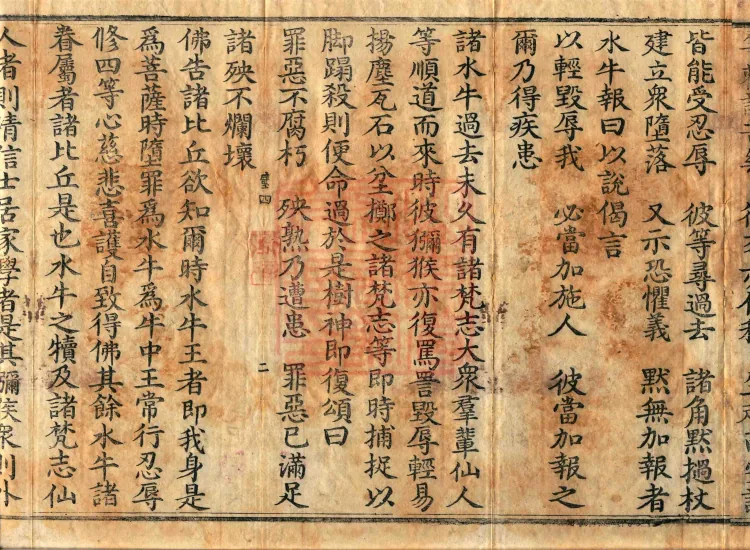 皆能受忍辱　彼等尋過去　諸角默撾杖
建立衆墮落　又示恐懼義　默無加報者
水牛報曰以說偈言
以輕毀辱我　必當加施人　彼當加報之
爾乃得疾患
諸水牛過去未久有諸梵志大衆羣輩仙人
等順道而來時彼獼猴亦復罵詈毀辱輕易
揚塵瓦石以坌擲之諸梵志等即時捕捉以
脚蹋殺則便命過於是樹神即復頌曰
罪惡不腐朽　殃熟乃遭患　罪惡已滿足
諸殃不爛壞
璧四　二
佛告諸比丘欲知爾時水牛王者即我身是
爲菩薩時墮罪爲水牛爲牛中王常行忍辱
修四等心慈悲喜護自致得佛其餘水牛諸
眷屬者諸比丘是也水牛之犢及諸梵志仙
人者則清信士居家學者是其獼猴衆則外